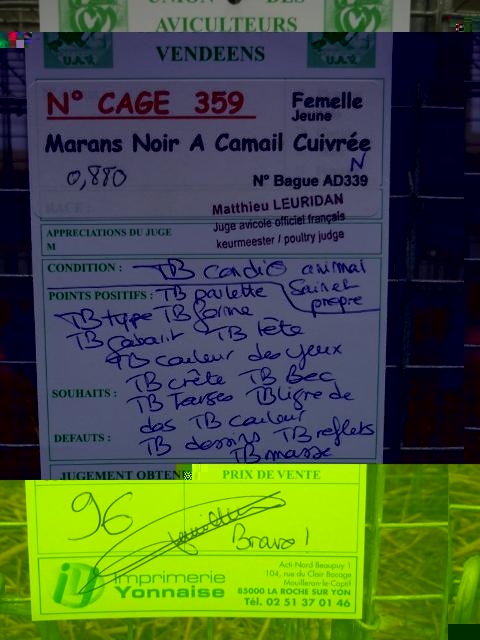 UNION DES
AVICULTEURS
VENDEENS
U.A.V. U.A.V.
N° CAGE 359
Femelle
Jeune
Marans Noir A Camail Cuivrée
N
0,880
N° Bague AD339
Matthieu LEURIDAN
Juge avicole officiel français
keurmeester / poultry judge
RACE :
APPRECIATIONS DU JUGE
M
CONDITION : TB condit° animal
Sain et
propre
POINTS POSITIFS : TB poulette
TB type TB forme
TB gabarit TB tête
TB couleur des yeux
TB crête TB Bec
SOUHAITS :
TB Tarses TB ligne de
dos TB couleur
DEFAUTS :
TB dessins TB reflets
TB masse
JUGEMENT OBTENU PRIX DE VENTE
96
Bravo !
imprimerie
Yonnaise
Acti-Nord Beaupuy 1
104, rue du Clair Bocage
Mouilleron-le-Captif
85000 LA ROCHE SUR YON
Tél. 02 51 37 01 46